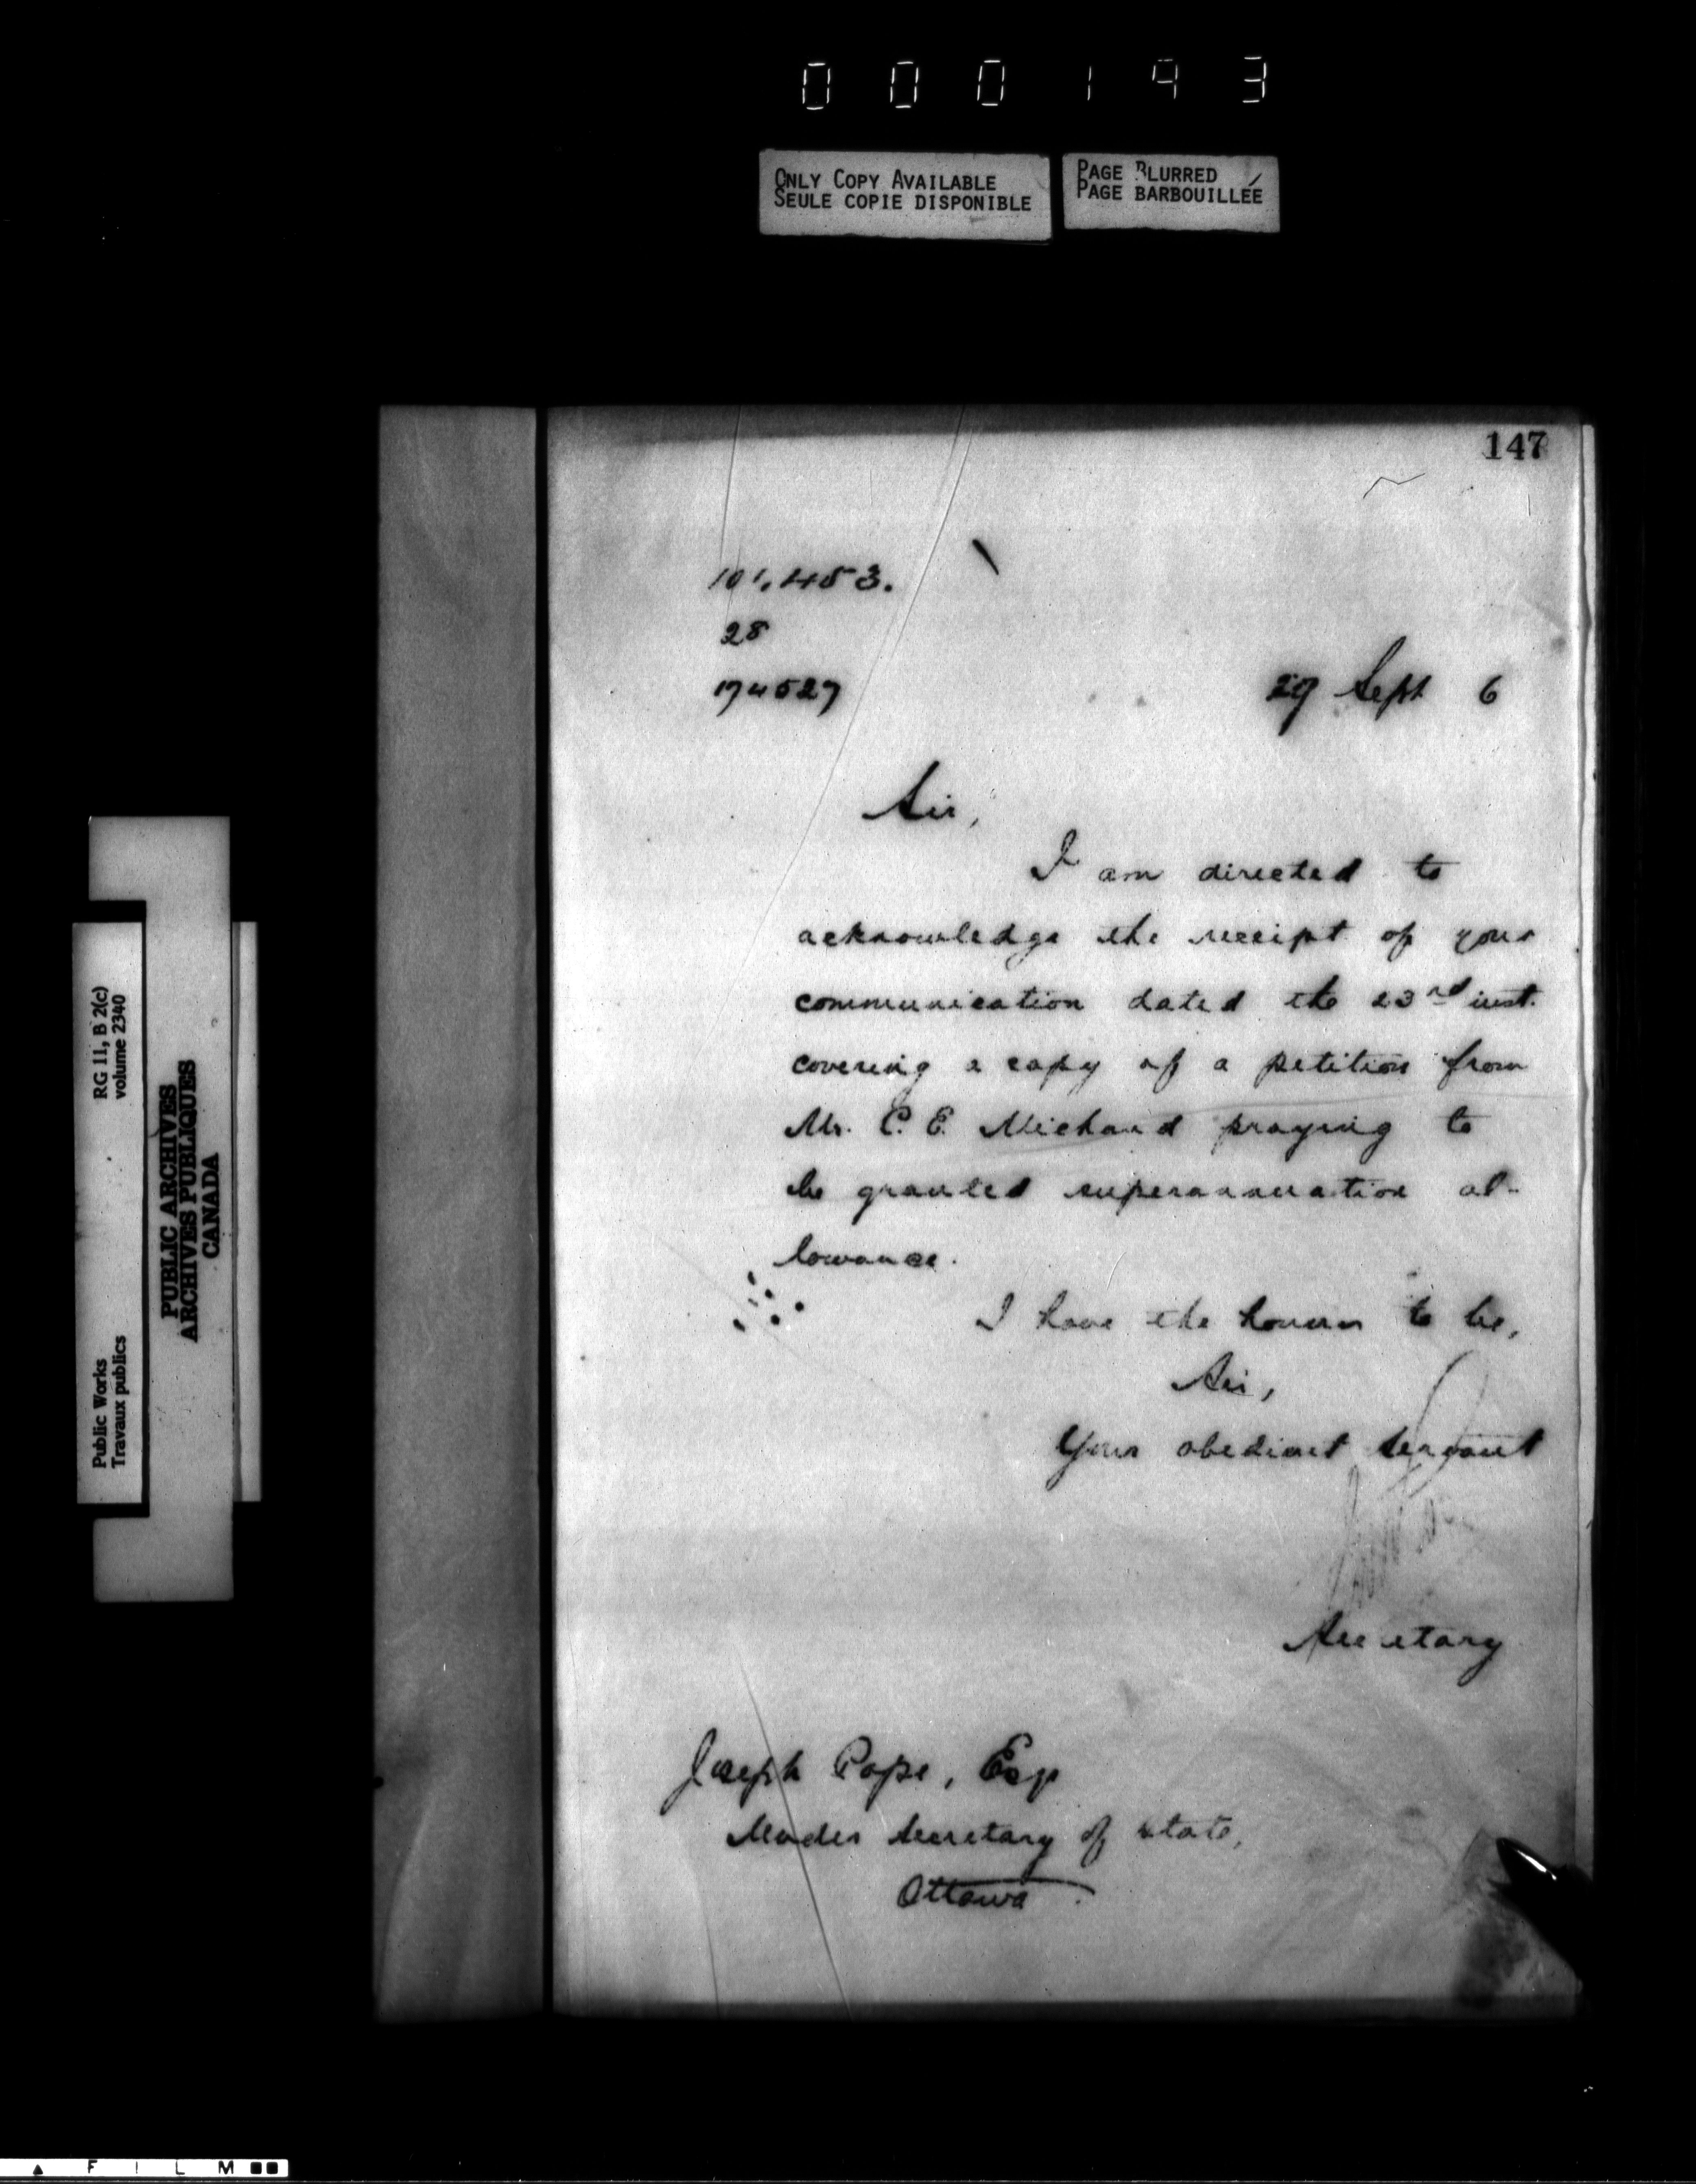 000193
ONLY COPY AVAILABLE
SEULE COPIE DISPONIBLE
PAGE BLURRED
PAGE BARBOUILLÉE
147
101,453.
28
174527
29 Sept 6
Sir,
I am directed to
acknowledge the receipt of your
communication dated the 23rd inst.
covering a copy of a petition from
Mr. C. E. Michaud praying to
be granted superannuation al-
lowance.
I have the honour to be,
Sir,
Your obedient servant
Secretary
Joseph Pope, Esq
Under Secretary of State,
Ottawa.
Public Works
Travaux publics
RG 11, B 2(c)
volume 2340
PUBLIC ARCHIVES
ARCHIVES PUBLIQUES
CANADA
FILM